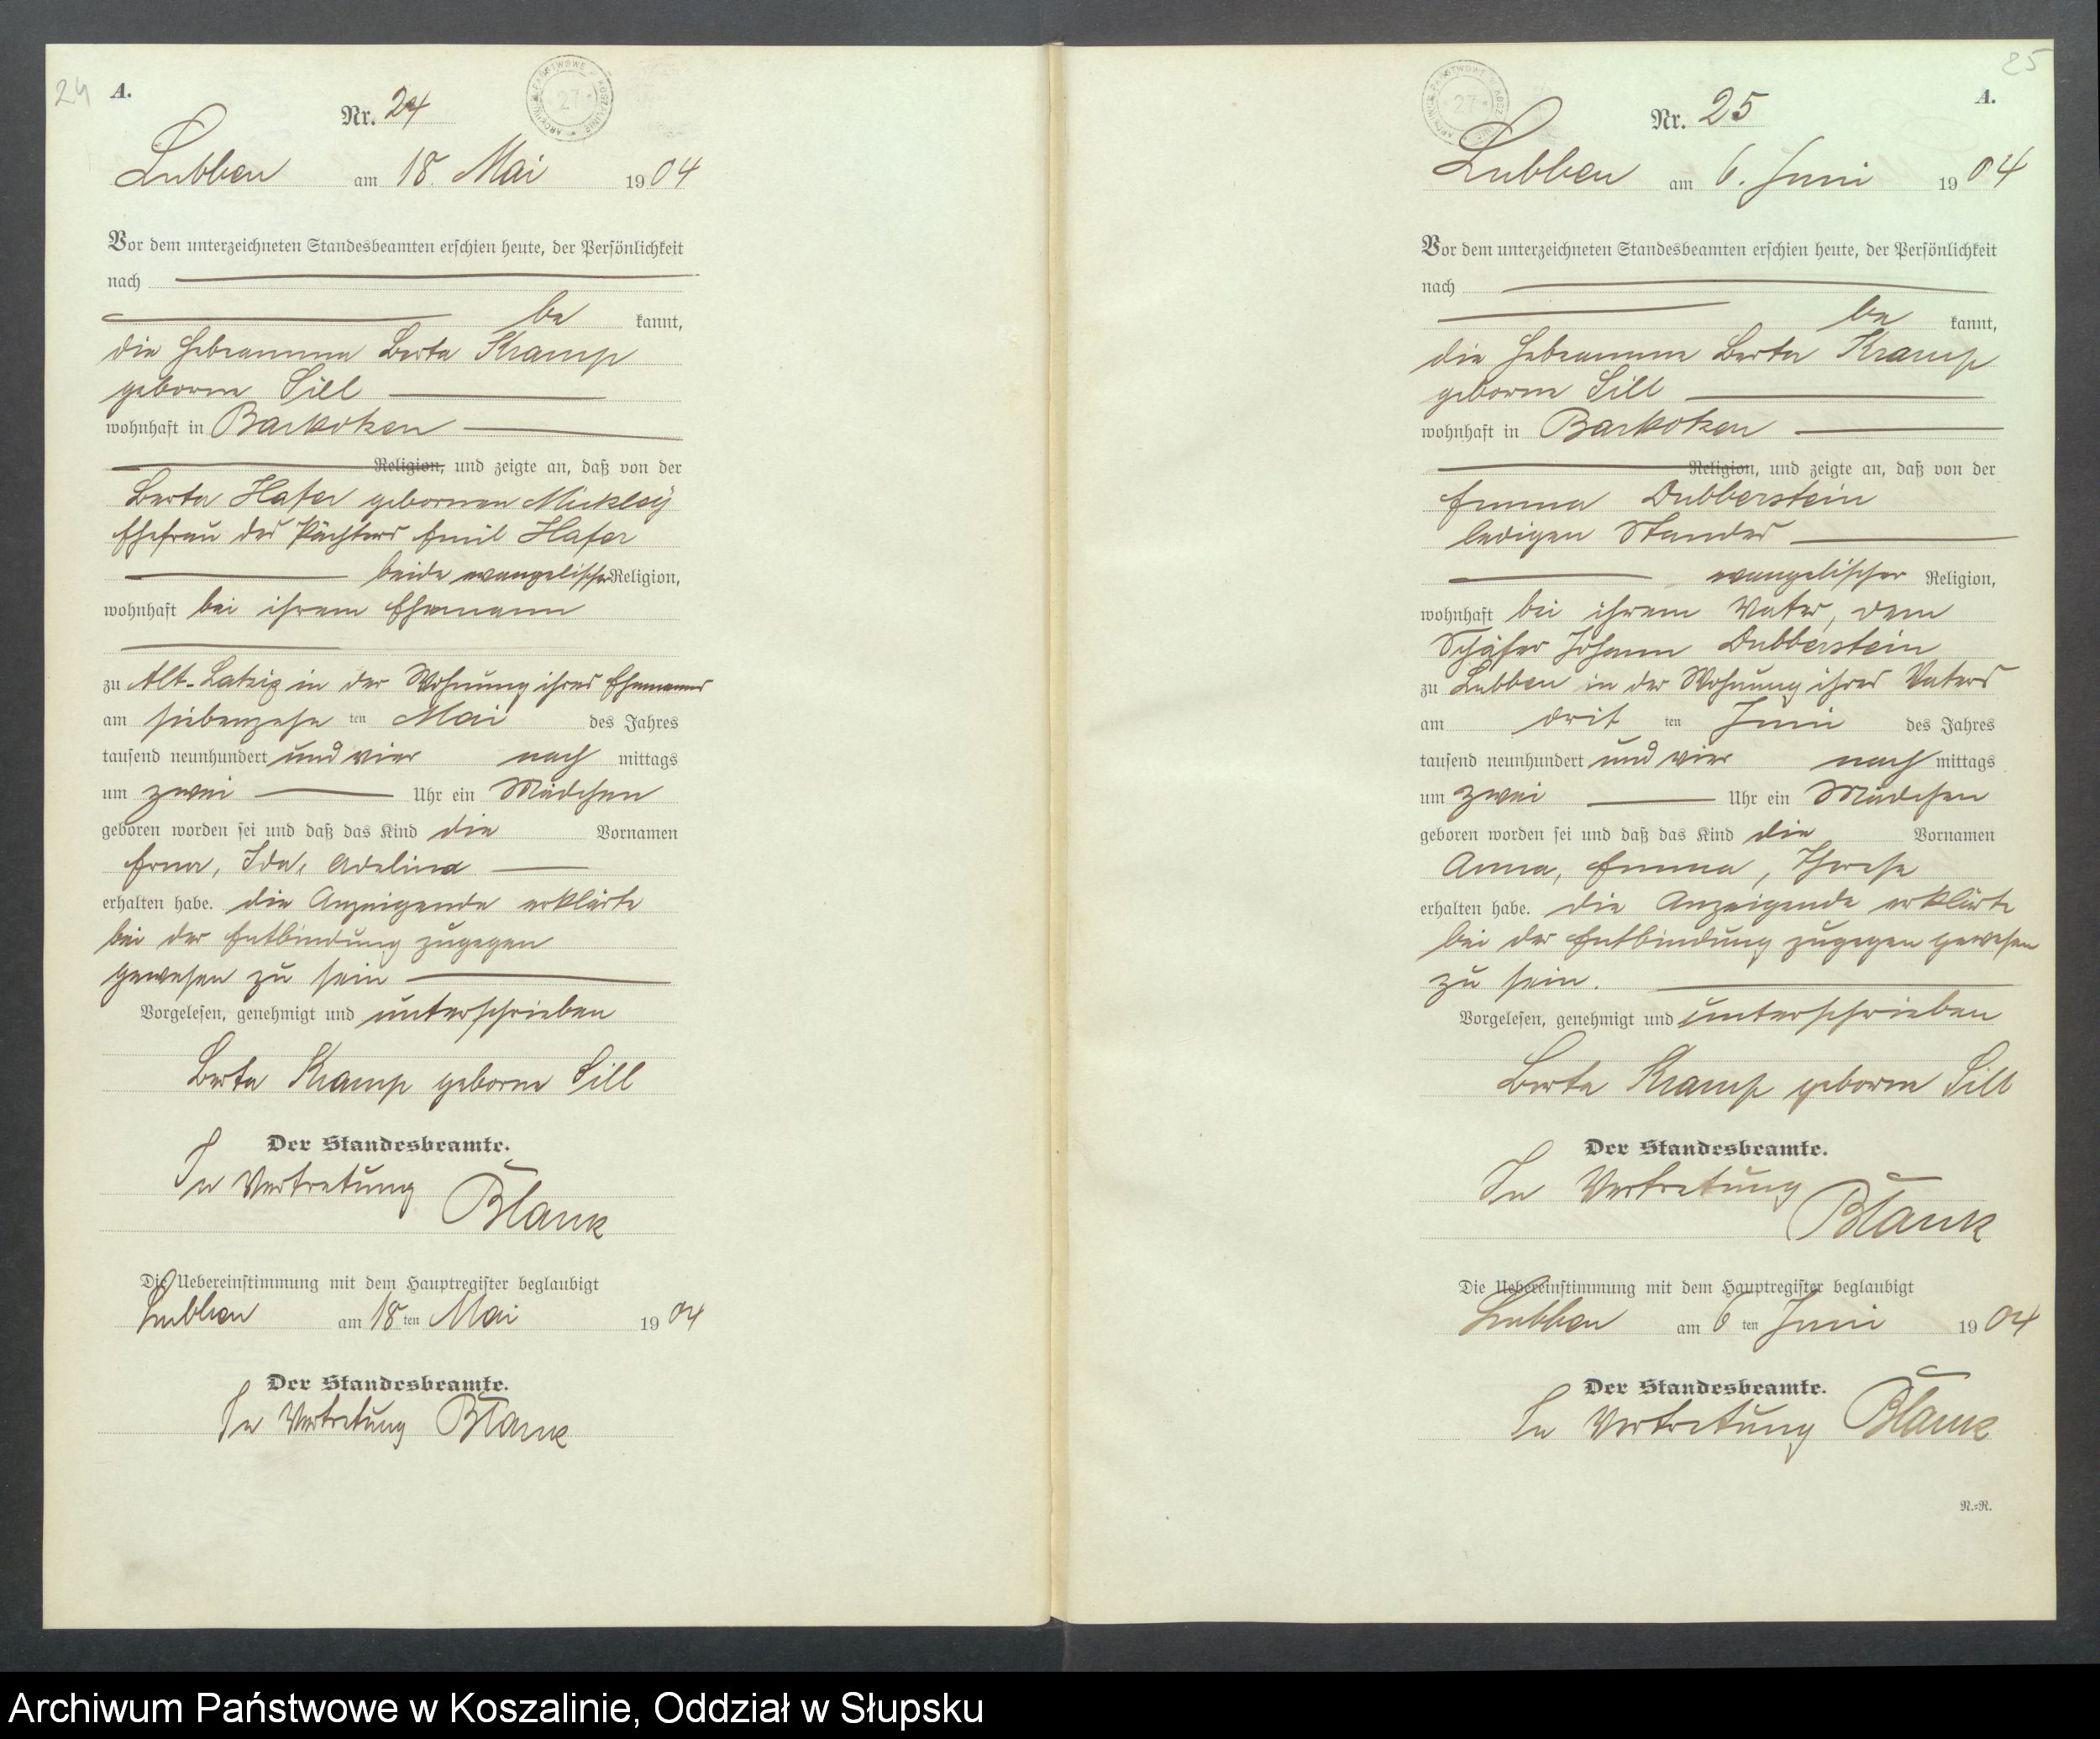 24
A.
Nr. 24
Lubben am 18. Mai 1904
Vor dem unterzeichneten Standesbeamten erschien heute, der Persönlichkeit
nach
be kannt,
die Hebamme Berta Kramp
geborne Sill
wohnhaft in Barkoken
Religion, und zeigte an, daß von der
Berta Hafer gebornen Mickley
Ehefrau des Pächters Emil Hafer
beide evangelischer Religion,
wohnhaft bei ihrem Ehemann
zu Alt-Latzig in der Wohnung ihres Ehemannes
am siebenzehn ten Mai des Jahres
tausend neunhundert und vier nach mittags
um zwei Uhr ein Mädchen
geboren worden sei und daß das Kind die Vornamen
Erna, Ida, Adelina
erhalten habe. die Anzeigende erklärte
bei der Entbindung zugegen
gewesen zu sein
Vorgelesen, genehmigt und unterschrieben
Berta Kramp geborne Sill
Der Standesbeamte.
In Vertretung
Blank
Die Uebereinstimmung mit dem Hauptregister beglaubigt
Lubben am 18 ten Mai 1904
Der Standesbeamte.
In Vertretung Blank
25
A.
Nr. 25
Lubben am 6. Juni 1904
Vor dem unterzeichneten Standesbeamten erschien heute, der Persönlichkeit
nach
be kannt,
die Hebamme Berta Kramp
geborne Sill
wohnhaft in Barkoken
Religion, und zeigte an, daß von der
Emma Dubberstein
ledigen Standes
evangelischer Religion,
wohnhaft bei ihrem Vater, dem
Schäfer Johann Dubberstein
zu Lubben in der Wohnung ihres Vaters
am drit ten Juni des Jahres
tausend neunhundert und vier nach mittags
um zwei Uhr ein Mädchen
geboren worden sei und daß das Kind die Vornamen
Anna, Emma, Therese
erhalten habe. die Anzeigende erklärte
bei der Entbindung zugegen gewesen
zu sein.
Vorgelesen, genehmigt und unterschrieben
Berta Kramp geborne Sill
Der Standesbeamte.
In Vertretung
Blank
Die Uebereinstimmung mit dem Hauptregister beglaubigt
Lubben am 6 ten Juni 1904
Der Standesbeamte.
In Vertretung Blank
N.-R.
Archiwum Państwowe w Koszalinie, Oddział w Słupsku